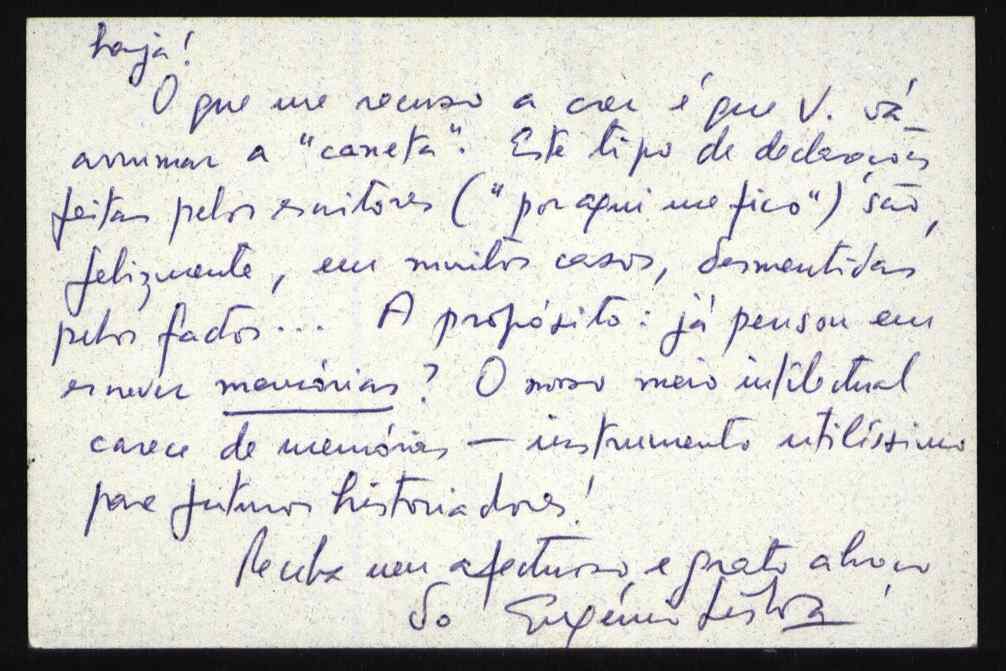 haja!
O que me recuso a crer é que V. vá
arrumar a "caneta". Este tipo de declarações
feitas pelos escritores ("por aqui me fico") são,
felizmente, em muitos casos, desmentidas
pelos factos... A propósito: já pensou em
escrever memórias? O nosso meio intelectual
carece de memórias — instrumento utilíssimo
para futuros historiadores!
Receba um afectuoso e grato abraço
do Eugénio Lisboa